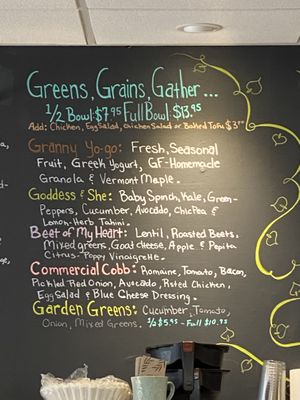 Greens, Grains, Gather...
1/2 Bowl: $7.95 Full Bowl: $13.95
Add: Chicken, Egg Salad, Chicken Salad or Baked Tofu $3
Granny Yo-go: Fresh, Seasonal
Fruit, Greek Yogurt, GF-Homemade
Granola & Vermont Maple.
Goddess & She: Baby Spinch, Kale, Green-
Peppers, Cucumber, Avocado, ChicPea &
Lemon-Herb Tahini.
Beet of My Heart: Lentil, Roasted Beets,
Mixed greens, Goat Cheese, Apple & Pepita
Citrus-Poppy Vinaigrette.
Commercial Cobb: Romaine, Tomato, Bacon,
Pickled Red Onion, Avocado, Rsted Chicken,
Egg Salad & Blue Cheese Dressing.
Garden Greens: Cucumber, Tomato,
Onion, Mixed Greens. 1/2 $5.95 - Full $10.95